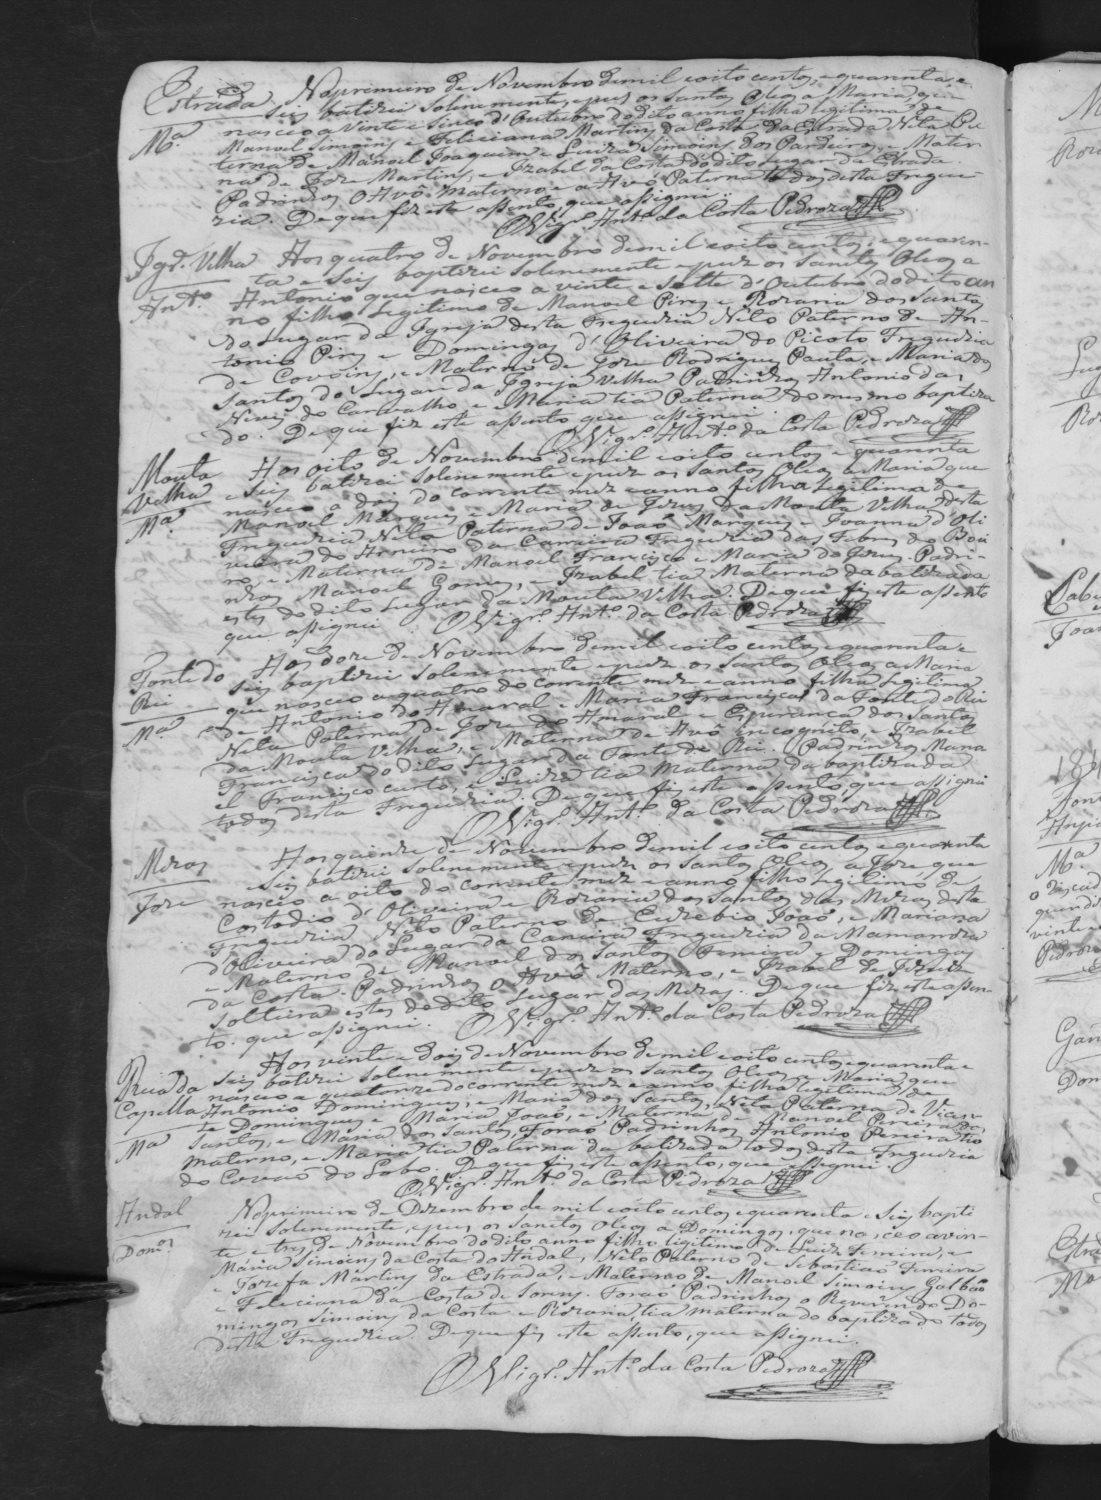 Estrada No primeiro de Novembro de mil e oito centos, e quarenta e
seis batizei solenemente, e puz os Santos Oleos a Maria, que
Mª nasceo a vinte e sinco d'Outubro do dito anno filha legitima de
Manoel Simoins e Feliciana Martins da Costa da Estrada Neta Pa
terna de Manoel Joaquim e Luiza Simoins dos Pardieiros, e Mater
na de Joze Martins, e Izabel da Costa do dito Lugar da Estrada
Padrinhos O Avô Materno e a Avó Paterna todos desta Fregue
zia. De que fiz este assento, que assignei
O Vigrº Antº da Costa Pedroza
Igrª Velha Aos quatro de Novembro de mil e oito centos, e quaren-
ta e seis baptizei solenemente e puz os Santos Oleos a
Antº Antonio que nasceo a vinte e sette d'Outubro do dito an
no filho Legitimo de Manoel Pires e Rozaria dos Santos
do Lugar da Igreja desta Freguezia Neto Paterno de An-
tonio Pires e Domingas d'Oliveira do Picoto Freguezia
de Covoins, e Materno de Joze Rodrigues Pauta, e Maria dos
Santos do Lugar da Igreja Velha Padrinhos Antonio das
Neves do Carvalho e Maria tia Paterna do mesmo baptiza
do. De que fiz este assento que assignei.
O Vigrº Antº da Costa Pedroza
Mouta Aos oito de Novembro de mil e oito centos e quarenta
Velha e seis batizei solenemente e puz os Santos Oleos a Maria que
Mª nasceo a dois do corrente mez e anno filha Legitima de
Manoel Marques e Maria de Jezus da Mouta Velha desta
Freguezia Neta Paterna de Joaõ Marques e Joanna d'Oli
veira do Arneiro da Carreira Freguezia das Febres do Boi
ro, e Materna de Manoel Francisco e Maria de Jezus. Padri-
nhos Manoel Gomes, e Izabel tia Materna da batizada
estes do dito Lugar da Mouta Velha. De que fiz este assento
que assignei O Vigrº Antº da Costa Pedroza
Fonte do Aos doze de Novembro de mil e oito centos e quarenta e
Rei seis baptizei solenemente e puz os Santos Oleos a Maria
Mª que nasceo a quatro do corrente mez e anno filha Legitima
de Antonio do Amaral e Maria Francisca da Fonte do Rei
Neta Paterna de Joze do Amaral e Esperança dos Santos
da Mouta Velha, e Materna de Avô incognito, e Izabel
Francisca do dito Lugar da Fonte do Rei. Padrinhos Mano
el Francisco curto, e Luiza tia Materna da baptizada
todos desta Freguezia. De que fiz este assento, que assignei
O Vigrº Antº da Costa Pedroza
Mezas Aos quinze de Novembro de mil e oito centos e quarenta
seis batizei solenemente e puz os Santos Oleos a Joze, que
Joze nasceo a oito do corrente mez e anno filho Legitimo de
Costodio d'Oliveira e Rozaria dos Santos das Mezas desta
Freguezia, Neto Paterno de Euzebio Joaõ, e Marianna
d'Oliveira do Lugar da Carreira Freguezia da Mamarroza
e Materno de Manoel dos Santos Ferreira e Domingas
da Costa. Padrinhos O Avô Materno, e Izabel de Jezus
solteira estes do dito Lugar das Mezas. De que fiz este assen-
to. que assignei. O Vigrº Antº da Costa Pedroza
Aos vinte e dois de Novembro de mil e oito centos e quarenta e
Rua da seis batizei solenemente e puz os Santos Oleos a Maria, que
Capella nasceo a quatorze do corrente mez e anno filha legitima de
Antonio Domingues, e Maria dos Santos, Neta Paterna de Vicen
Mª te Domingues e Maria Joaõ, e Materna de Manoel Pereira dos
Santos, e Maria dos Santos, Foraõ Padrinhos Antonio Pereira tio
materno, e Maria tia Paterna da batizada todos desta Freguezia
do Covaõ do Lobo. De que fiz este assento, que assignei.
O Vigrº Antº da Costa Pedroza
Andal No primeiro de Dezembro de mil e oito centos e quarenta e seis bapti
zei solenemente, e puz os Santos Oleos a Domingos, que nasceo a vin-
Domos te e tres de Novembro do dito anno filho legitimo de Luiz Ferreira, e
Maria Simoins da Costa do Andal, Neto Paterno de Sebastiaõ Ferreira
e Jozefa Martins da Estrada, e Materno de Manoel Simoins Galbaõ
e Feleciana da Costa de Foraõ Padrinhos o Reverendo Do-
mingos Simoins da Costa e Rozaria, tia materna do baptizado todos
desta Freguezia. De que fiz este assento, que assignei.
O Vigrº Antº da Costa Pedroza